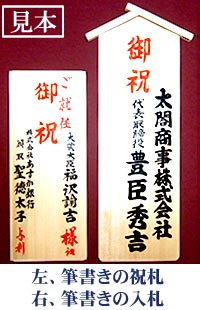 見本
御祝
太閤商事株式会社
代表取締役 豊臣秀吉
ご就任
御祝
大蔵大臣
福沢諭吉 様江
株式会社あすか銀行
頭取 聖徳太子 与利
左、筆書きの祝札
右、筆書きの入札